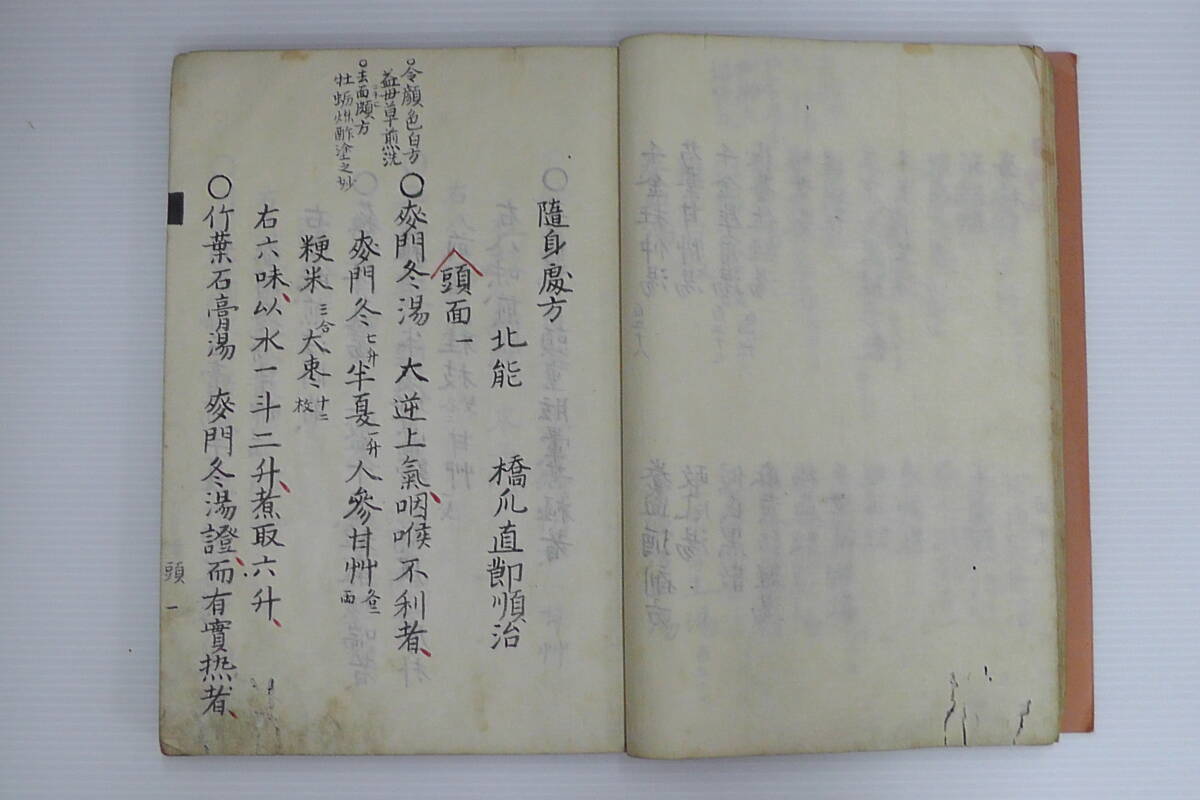 隨身處方
北能　橋爪直郎順治
頭面一
○麥門冬湯　大逆上氣咽喉不利者、
麥門冬七升半夏一升人參甘艸各二両
粳米三合大棗十二枚
右六味、以水一斗二升、煮取六升、
○竹葉石膏湯　麥門冬湯證、而有實热者、
○令顏色白方
益母草煎洗
○去面頗方
牡蛎煉酢塗之妙
頭　一